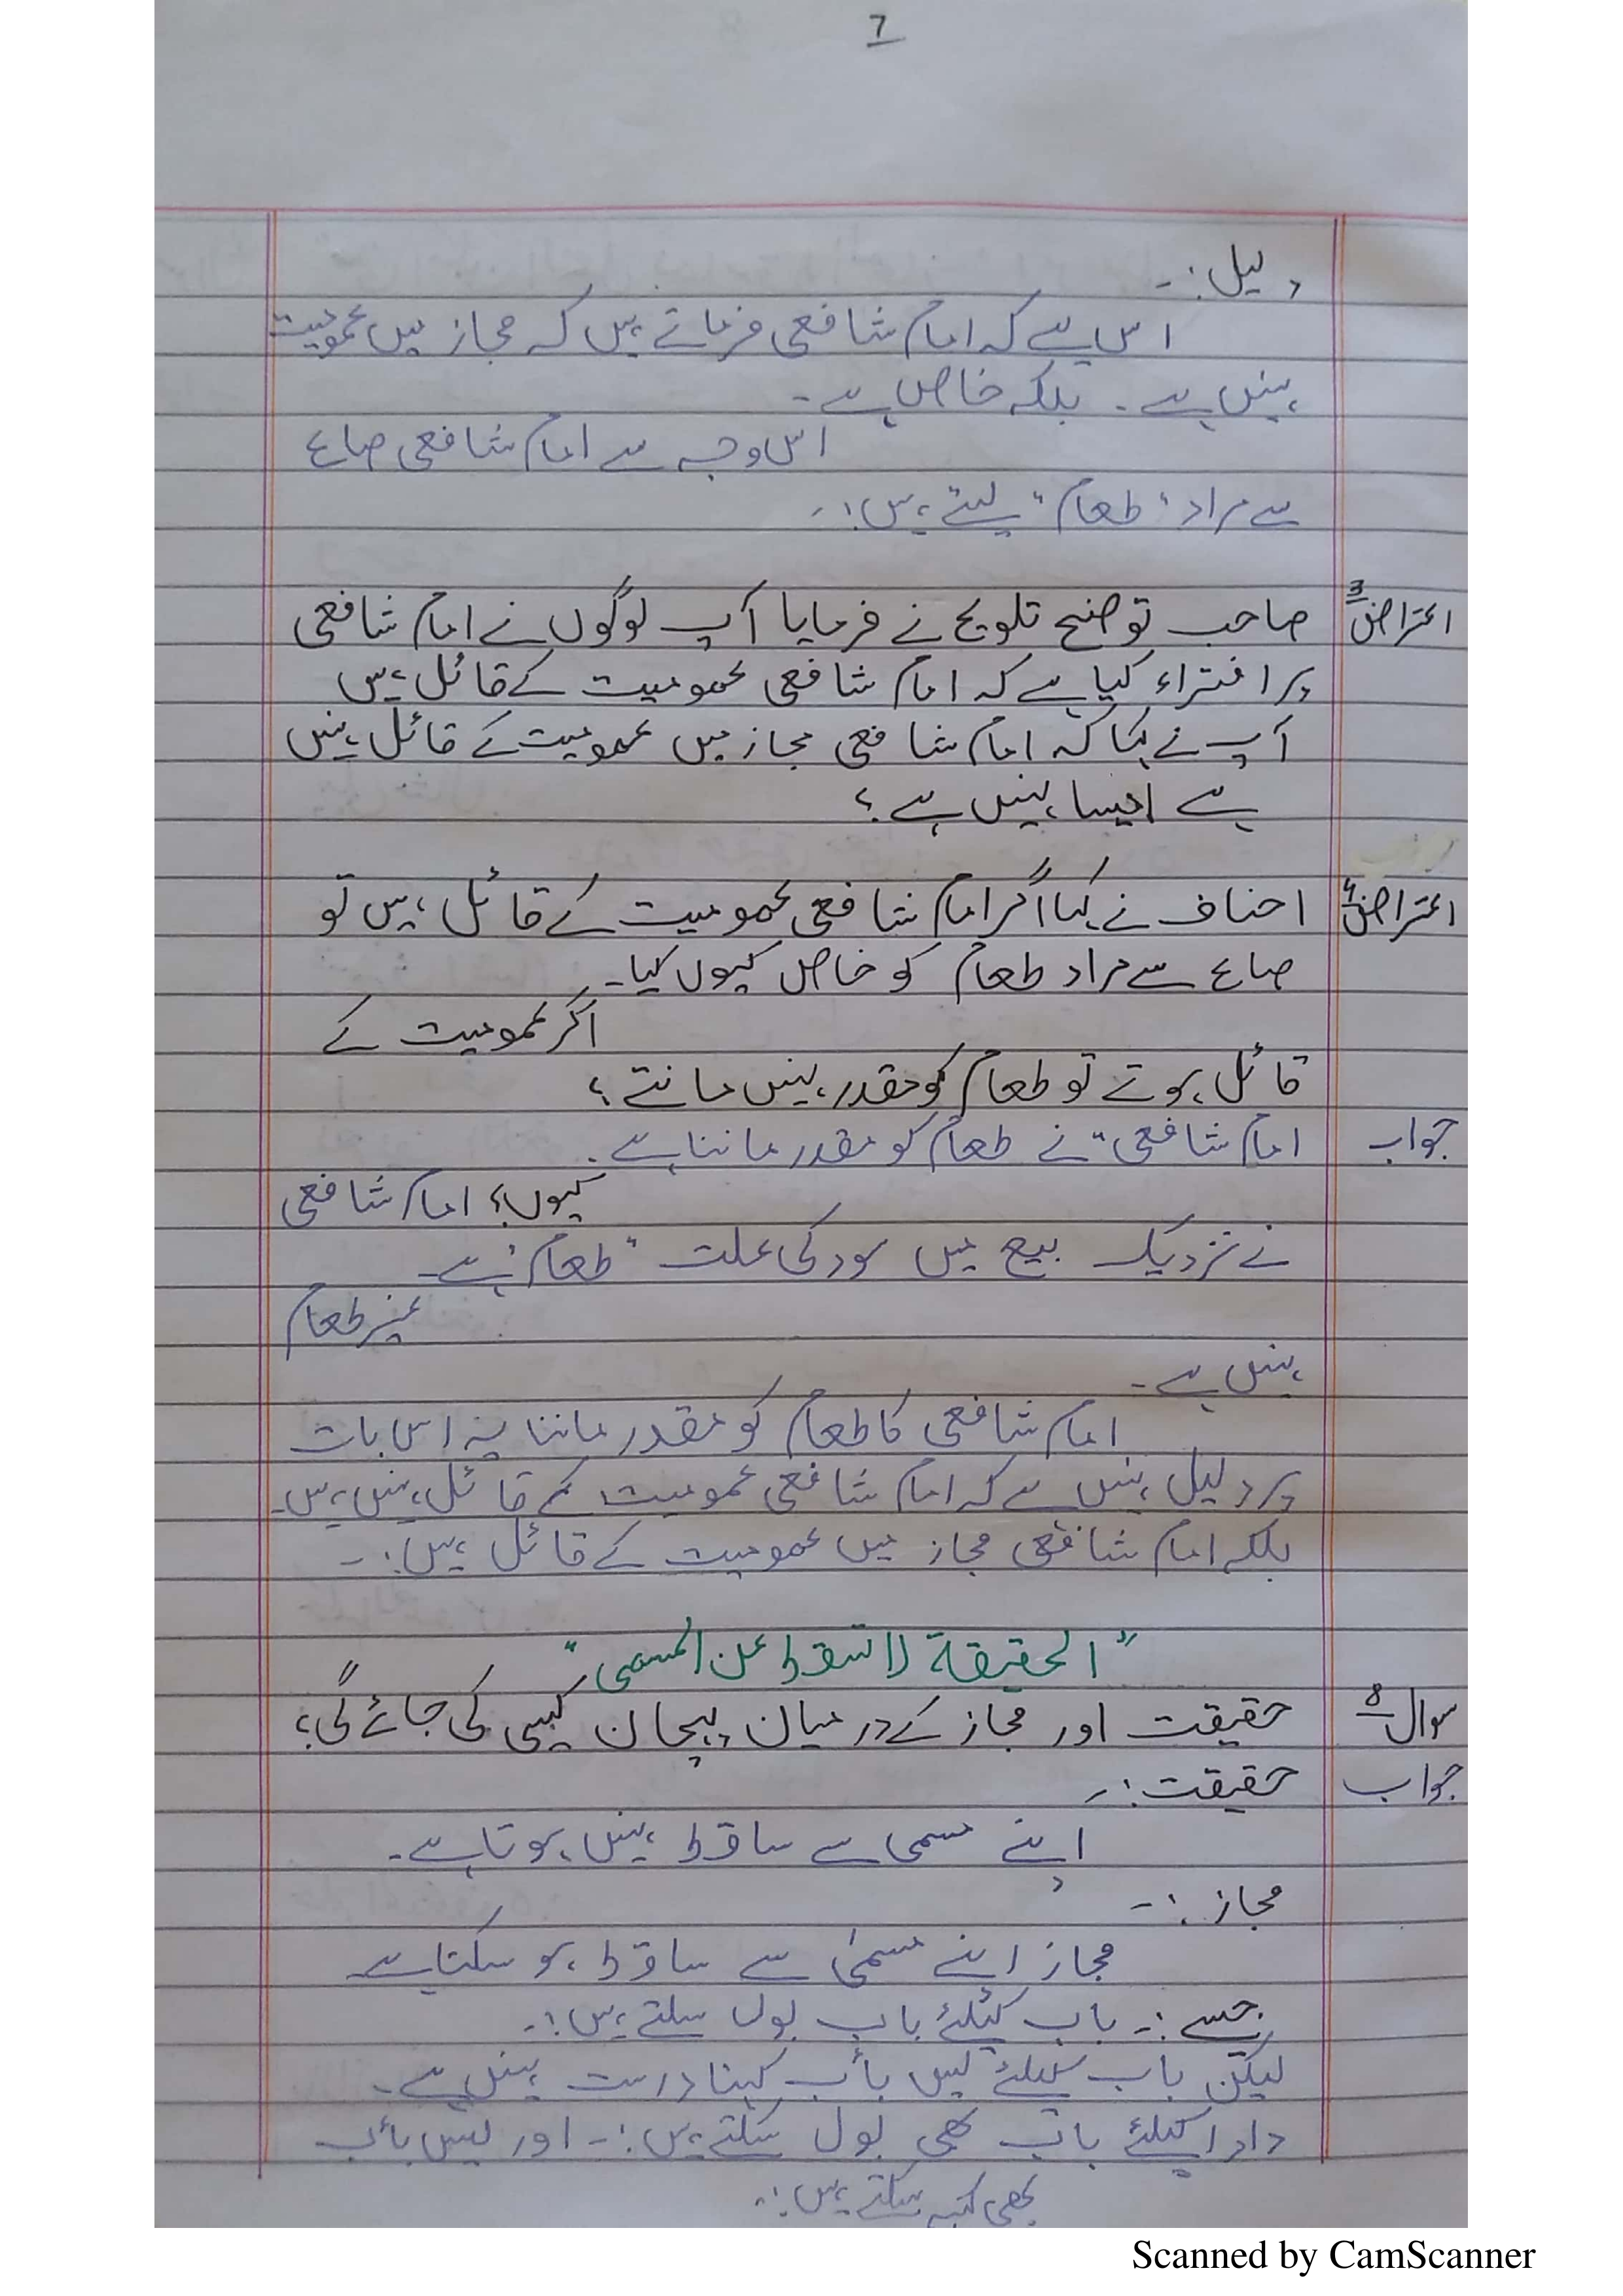 7
دلیل:-
اس لیے کہ امام شافعی فرماتے ہیں کہ مجاز میں عمومیت
نہیں ہے۔ بلکہ خاص ہے۔
اس وجہ سے امام شافعی صاع
سے مراد "طعام" لیتے ہیں:-
اعتراض 3 صاحب توضیح تلویح نے فرمایا آپ لوگوں نے امام شافعی
پر افتراء کیا ہے کہ امام شافعی عمومیت کے قائل ہیں
آپ نے کہا کہ امام شافعی مجاز میں عمومیت کے قائل نہیں
ہے ایسا نہیں ہے؟
اعتراض 4 احناف نے کہا اگر امام شافعی عمومیت کے قائل ہیں تو
صاع سے مراد طعام کو خاص کیوں کیا۔
اگر عمومیت کے
قائل ہوتے تو طعام کو مقدر نہیں مانتے؟
جواب امام شافعی نے طعام کو مقدر ماننا ہے۔
کیوں؟ امام شافعی
نے نزدیک بیع میں سود کی علت "طعام" ہے۔
غیر طعام
نہیں ہے۔
امام شافعی کا طعام کو مقدر ماننا یہ اس بات
پر دلیل نہیں ہے کہ امام شافعی عمومیت کے قائل نہیں ہیں۔
بلکہ امام شافعی مجاز میں عمومیت کے قائل ہیں:-
"الحقیقة لا تسقط عن المسمی"
سوال 8 حقیقت اور مجاز کے درمیان پہچان کیسی کی جائے گی؟
جواب حقیقت:-
اپنے مسمی سے ساقط نہیں ہوتا ہے۔
مجاز:-
مجاز اپنے مسمیٰ سے ساقط ہو سکتا ہے
جیسے:- باپ کیلئے باپ بول سکتے ہیں:-
لیکن باپ کیلئے لیس بأب کہنا درست نہیں ہے۔
دادا کیلئے باپ بھی بول سکتے ہیں:- اور لیس بأب
بھی کہہ سکتے ہیں:-
Scanned by CamScanner